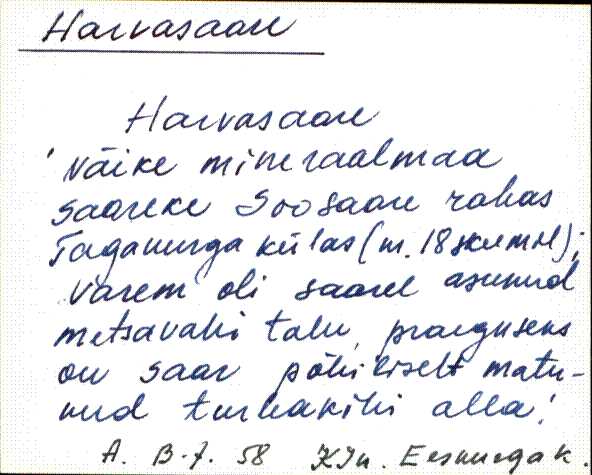 Harvasaare
Harvasaare
väike mineraalmaa
saareke Soosaare rabas
Taganurga külas (m. 18
varem oli saarel asunud
metsavahi talu, praeguseks
on saar põhiliselt mattu-
nud turbakihi alla.
A. B-7. 58 KJn. Eesnurga k.